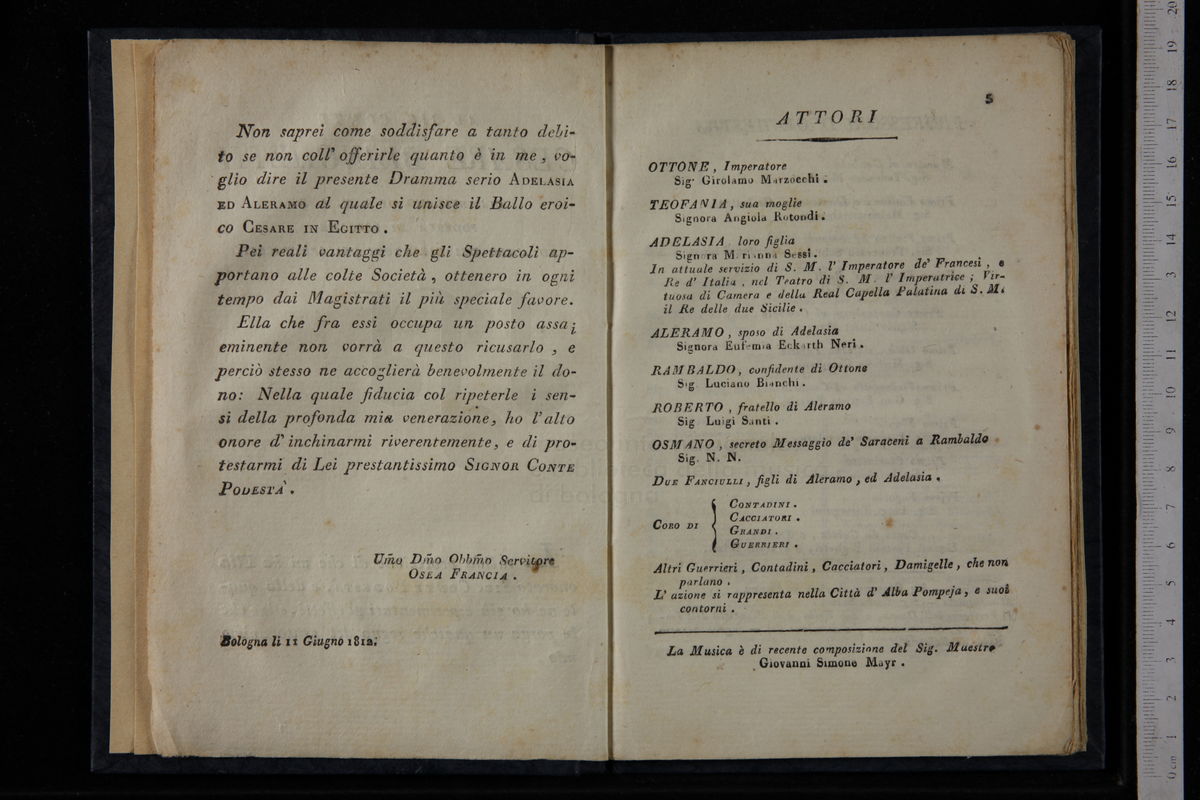 Non saprei come soddisfare a tanto debi-
to se non coll' offerirle quanto è in me, vo-
glio dire il presente Dramma serio ADELASIA
ED ALERAMO al quale si unisce il Ballo eroi-
co CESARE IN EGITTO.
Pei reali vantaggi che gli Spettacoli ap-
portano alle colte Società, ottenero in ogni
tempo dai Magistrati il più speciale favore.
Ella che fra essi occupa un posto assai
eminente non vorrà a questo ricusarlo, e
perciò stesso ne accoglierà benevolmente il do-
no: Nella quale fiducia col ripeterle i sen-
si della profonda mia venerazione, ho l'alto
onore d'inchinarmi riverentemente, e di pro-
testarmi di Lei prestantissimo SIGNOR CONTE
PODESTA'.
Um̃o Dm̃o Obbm̃o Servitore
OSEA FRANCIA.
Bologna li 11 Giugno 1812.
5
ATTORI
OTTONE, Imperatore
Sig. Girolamo Marzocchi.
TEOFANIA, sua moglie
Signora Angiola Rotondi.
ADELASIA loro figlia
Signora Marianna Sessi.
In attuale servizio di S. M. l' Imperatore de' Francesi, e
Re d' Italia, nel Teatro di S. M. l' Imperatrice; Vir-
tuosa di Camera e della Real Capella Palatina di S. M.
il Re delle due Sicilie.
ALERAMO, sposo di Adelasia
Signora Eufemia Eckarth Neri.
RAMBALDO, confidente di Ottone
Sig. Luciano Bianchi.
ROBERTO, fratello di Aleramo
Sig. Luigi Santi.
OSMANO, secreto Messaggio de' Saraceni a Rambaldo
Sig. N. N.
DUE FANCIULLI, figli di Aleramo, ed Adelasia.
CORO DI
CONTADINI.
CACCIATORI.
GRANDI.
GUERRIERI.
Altri Guerrieri, Contadini, Cacciatori, Damigelle, che non
parlano.
L' azione si rappresenta nella Città d' Alba Pompeja, e suoi
contorni.
La Musica è di recente composizione del Sig. Maestro
Giovanni Simone Mayr.